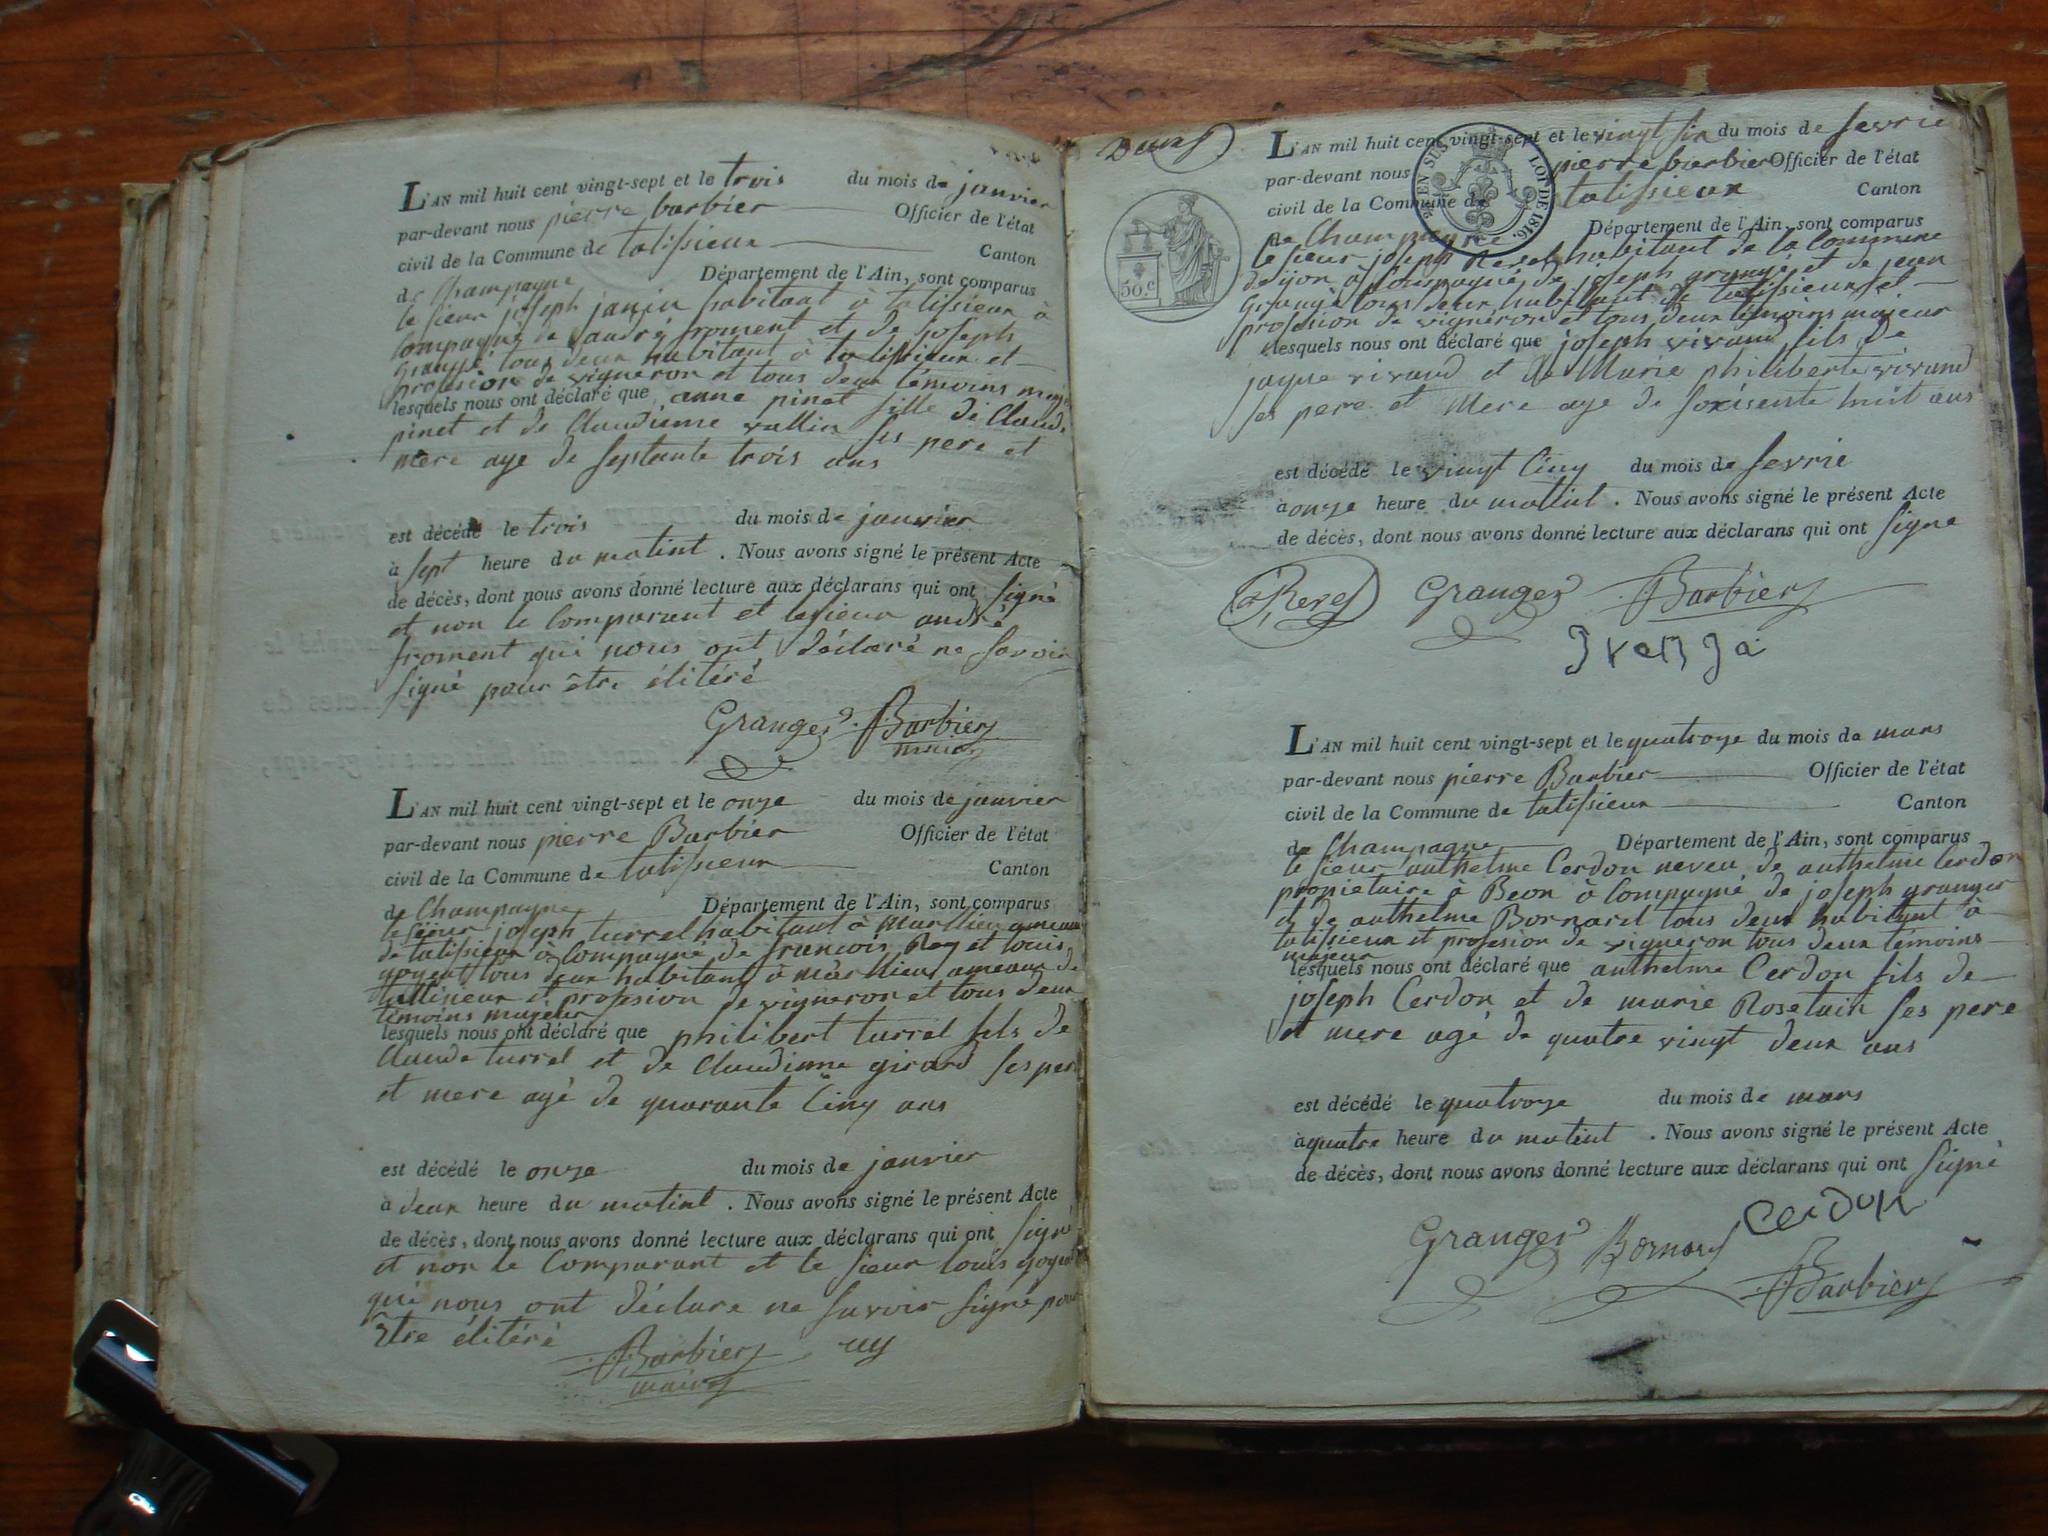 L'AN mil huit cent vingt-sept et le trois du mois de janvier
par-devant nous pierre barbier Officier de l'état
civil de la Commune de talissieux Canton
de Champagne Département de l'Ain, sont comparus
le sieur joseph janin habitant à talissieux à
Compagné de andré froment et de joseph
grangé tous deux habitant à talissieux et
profesion de vigneron et tous deux témoins
lesquels nous ont déclaré que anne pinet fille de Claude
pinet et de Claudinne vallin ses pere et
mere age de septante trois ans
est décédé le trois du mois de janvier
à sept heure du matint . Nous avons signé le présent Acte
de décès, dont nous avons donné lecture aux déclarans qui ont signé
et non le Comparant et lesieur andré
froment qui nous ont déclaré ne savoir
signé pour être élitéré
Granger Barbier
maire
L'AN mil huit cent vingt-sept et le onze du mois de janvier
par-devant nous pierre Barbier Officier de l'état
civil de la Commune de talissieux Canton
de Champagne Département de l'Ain, sont comparus
le sieur joseph turrel habitant à Marllieu ameaux
de talissieux à Compagné de francois Rey et louis
goyet tous deux habitant à marllieu ameaux de
tallissieux et profesion de vigneron et tous deux
témoins majeur
lesquels nous ont déclaré que philibert turrel fils de
Claude turrel et de Claudinne girard ses pere
et mere agé de quarante Cinq ans
est décédé le onze du mois de janvier
à deux heure du matint . Nous avons signé le présent Acte
de décès, dont nous avons donné lecture aux déclarans qui ont signé
et non le Comparant et le sieur louis goyet
qui nous ont déclare ne savoir signé pour
être élitéré
Barbier rey
maire
L'AN mil huit cent vingt-sept et le vingt six du mois de fevrie
par-devant nous pierre barbier Officier de l'état
civil de la Commune de talissieux Canton
EN SUS LOI DE 1816.
de Champagne Département de l'Ain, sont comparus
50.c
le sieur joseph Revel habitant de la Commune
à Compagné de joseph grangé et de jean
Grangé tous deux habitant de talissieux et
profesion de vignéron et tous deux témoins majeur
lesquels nous ont déclaré que joseph vivand fils de
jaque vivand et de Marie philiberte vivand
ses pere et Mere age de soixsente huit ans
est décédé le vingt Cinq du mois de fevrie
à onze heure du matint . Nous avons signé le présent Acte
de décès, dont nous avons donné lecture aux déclarans qui ont signe
Granger Barbier
L'AN mil huit cent vingt-sept et le quatroze du mois de mars
par-devant nous pierre Barbier Officier de l'état
civil de la Commune de talissieux Canton
de Champagne Département de l'Ain, sont comparus
le sieur anthelme Cerdon neveu de anthelme Cerdon
propietaire à Beon à Compagné de joseph granger
et de anthelme Bornard tous deux habitant à
talissieux et profesion de vigneron tous deux témoins
majeur
lesquels nous ont déclaré que anthelme Cerdon fils de
joseph Cerdon et de marie Rosetain ses pere
et mere agé de quatre vingt deux ans
est décédé le quatroze du mois de mars
à quatre heure du matint . Nous avons signé le présent Acte
de décès, dont nous avons donné lecture aux déclarans qui ont signé
Granger Bornard Cerdon
Barbier